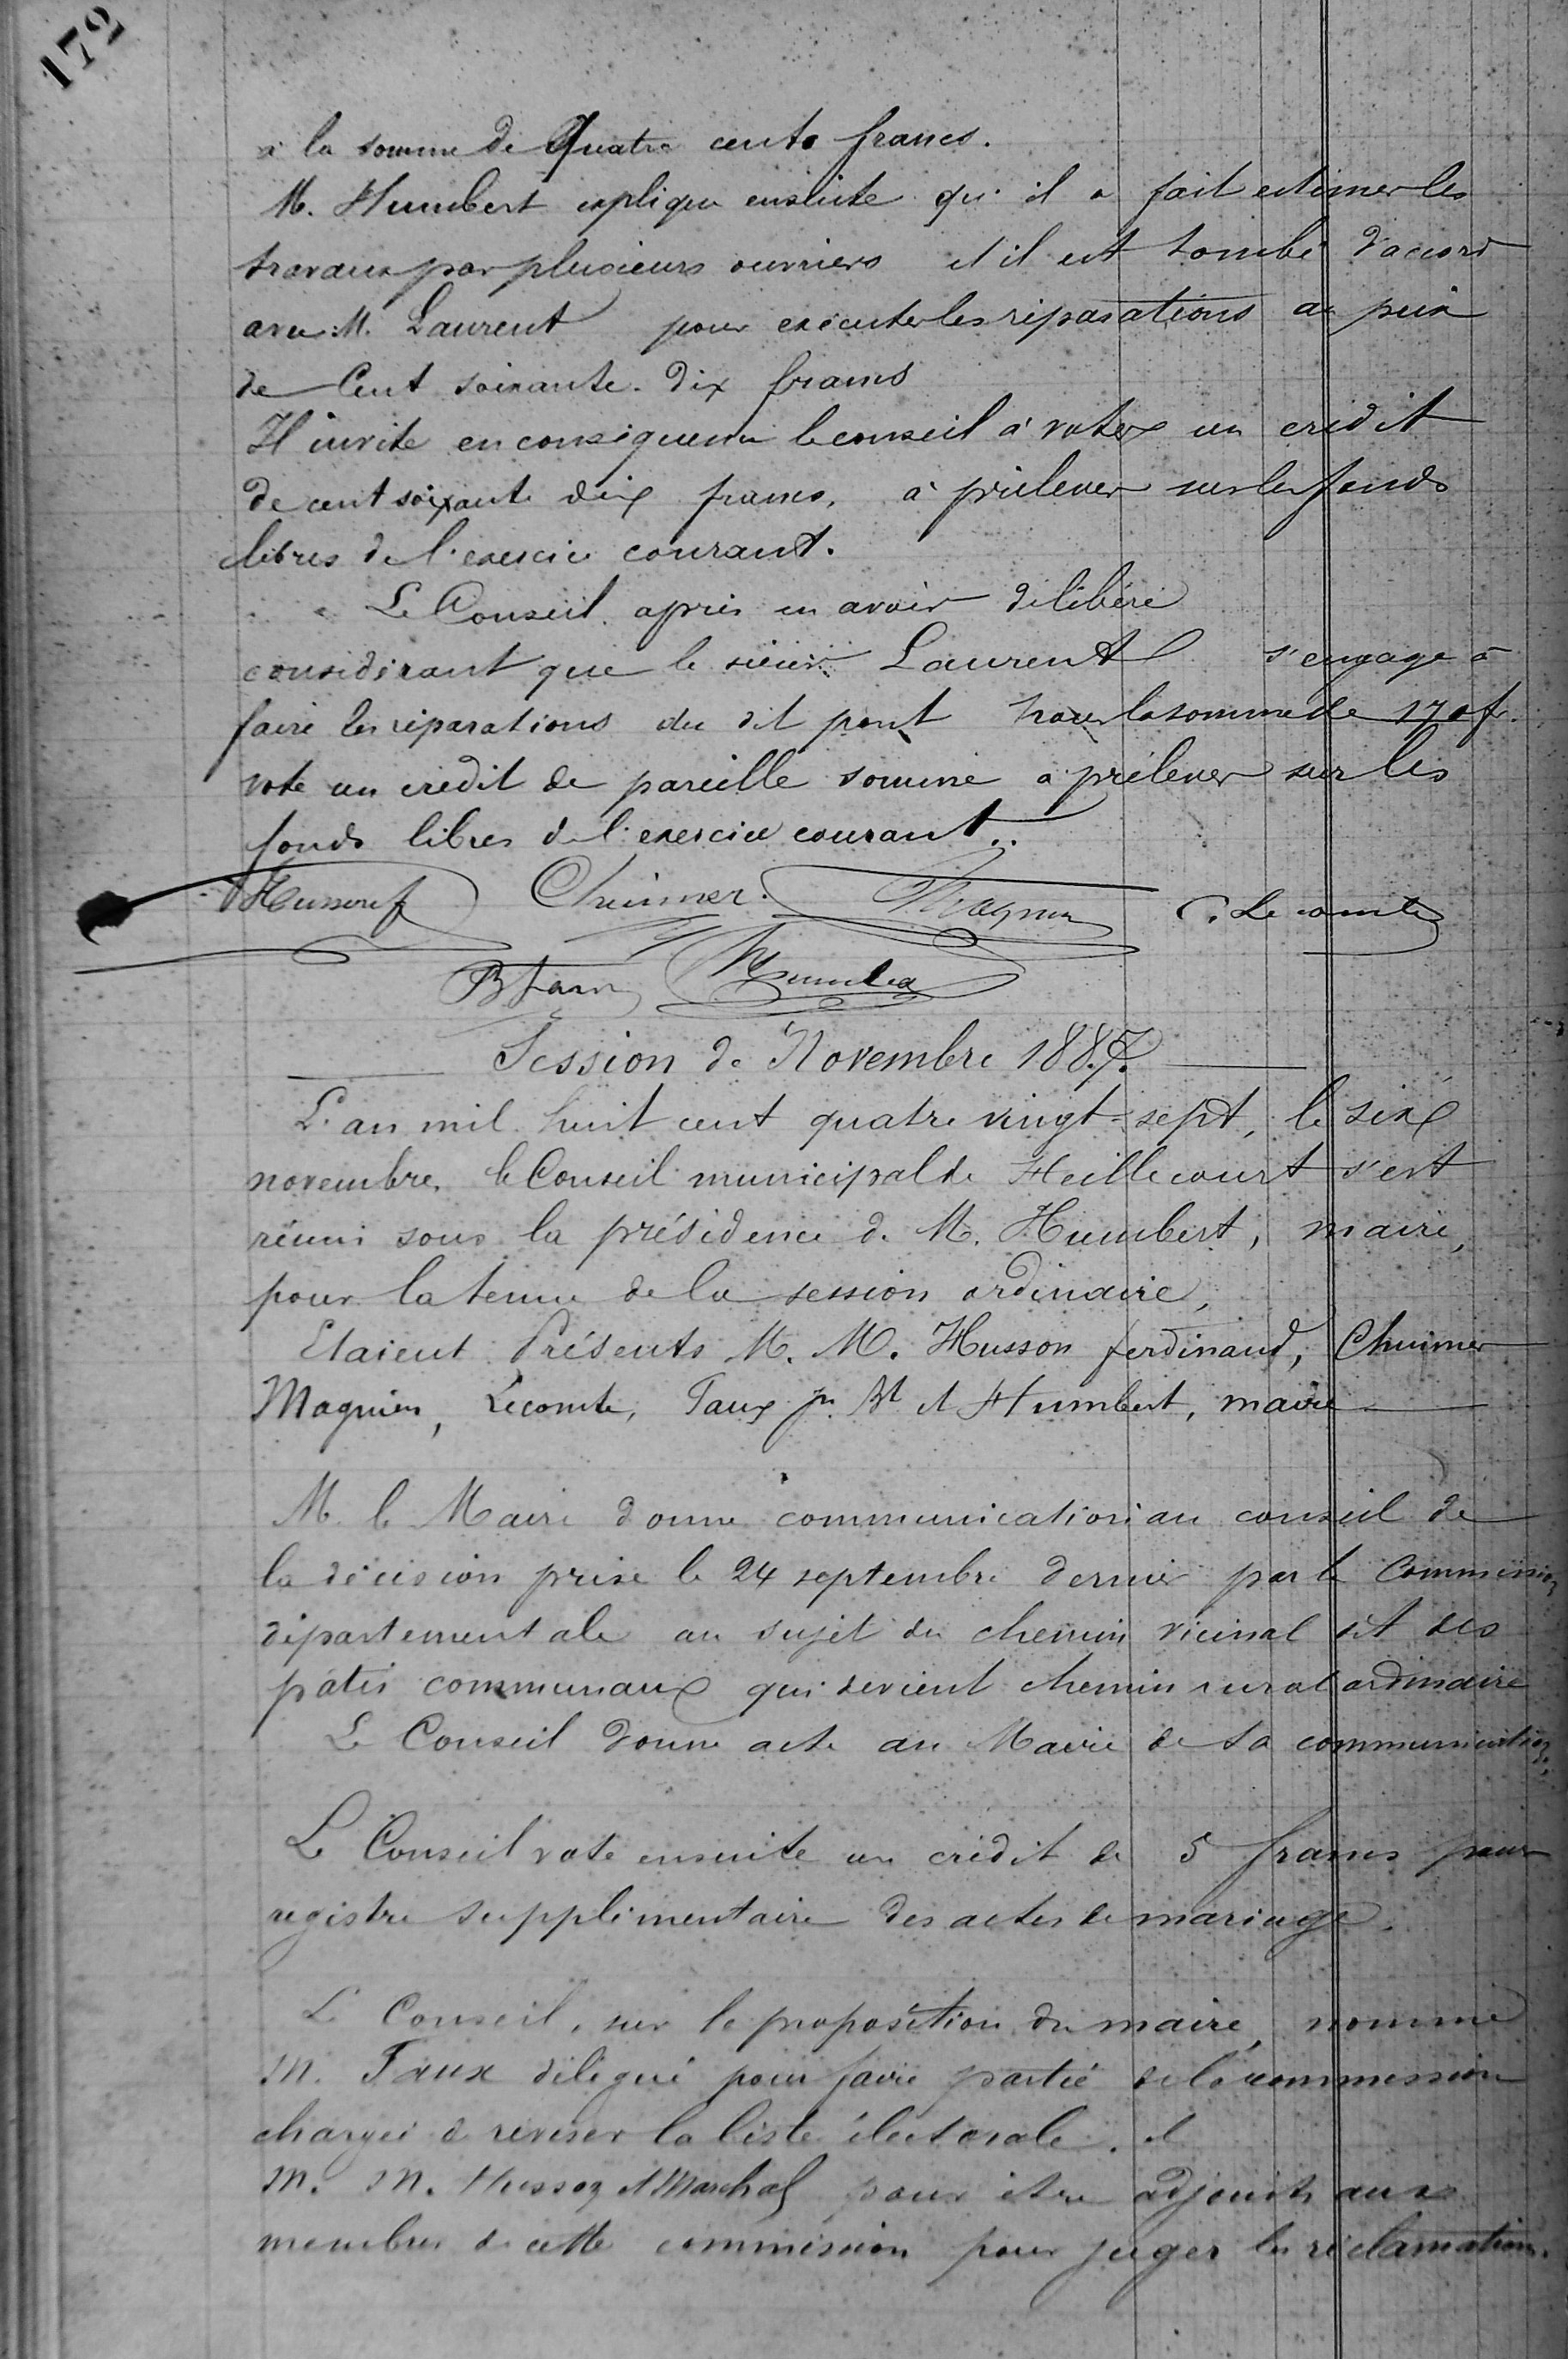 172
à la somme de Quatre cents francs.
M. Humbert explique ensuite qu'il a fait estimer les
travaux par plusieurs ouvriers et il est tombé d'accord
avec M. Laurent pour exécuter les réparations au prix
de Cent soixante-dix francs
Il invite en conséquence le conseil à voter un crédit
de cent soixante dix francs, à prélever sur les fonds
libres de l'exercice courant.
Le Conseil après en avoir délibéré
considérant que le sieur Laurent s'engage à
faire les réparations du dit pont pour la somme de 170 f.
vote un crédit de pareille somme à prélever sur les
fonds libres de l'exercice courant.
Husson f Chuimer. Magnien C. Lecomte
Humbert
Session de Novembre 1887.
L'an mil huit cent quatre vingt-sept, le six
novembre, le Conseil municipal de Heillecourt s'est
réuni sous la présidence de M. Humbert, maire,
pour la tenue de la session ordinaire,
Etaient Présents M. M. Husson ferdinand, Chuimer
Magnien, Lecomte, Faux jn Bt et Humbert, maire
M. le Maire donne communication au conseil de
la décision prise le 24 septembre dernier par la Commission
départementale au sujet du chemin vicinal dit des
patis communaux qui devient chemin rural ordinaire
Le Conseil donne acte au Maire de sa communication,
Le Conseil vote ensuite un crédit de 5 francs pour
registre supplémentaire des actes de mariage.
Le Conseil, sur la proposition du maire, nomme
M. Faux délégué pour faire partie de la commission
chargée de reviser la liste électorale. et
M. M. Husson et Marchal pour être adjoints aux
membres de cette commission pour juger les réclamations.